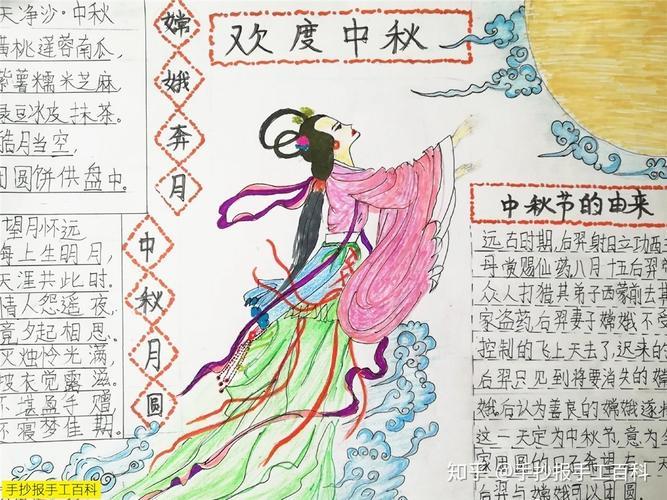 欢度中秋
嫦娥奔月
中秋月圆
天净沙·中秋
黄桃莲蓉南瓜,
紫薯糯米芝麻
绿豆冰皮抹茶。
皓月当空,
团圆饼供盘中。
望月怀远
海上生明月,
天涯共此时。
情人怨遥夜,
竟夕起相思。
灭烛怜光满,
披衣觉露滋。
不堪盈手赠
还寝梦佳期。
中秋节的由来
远古时期,后羿射日立功西王
母赏赐仙药八月十五后羿
众人打猎其弟子西蒙前去其
家盗药,后羿妻子嫦娥不受
控制的飞上天去了,迟来的
后羿只见到将要消失的嫦
娥,后认为善良的嫦娥逐
这一天定为中秋节,意为大
家团圆的日子希望有一天
后羿与嫦娥可以团圆
手抄报手工百科
知乎 @手抄报手工百科